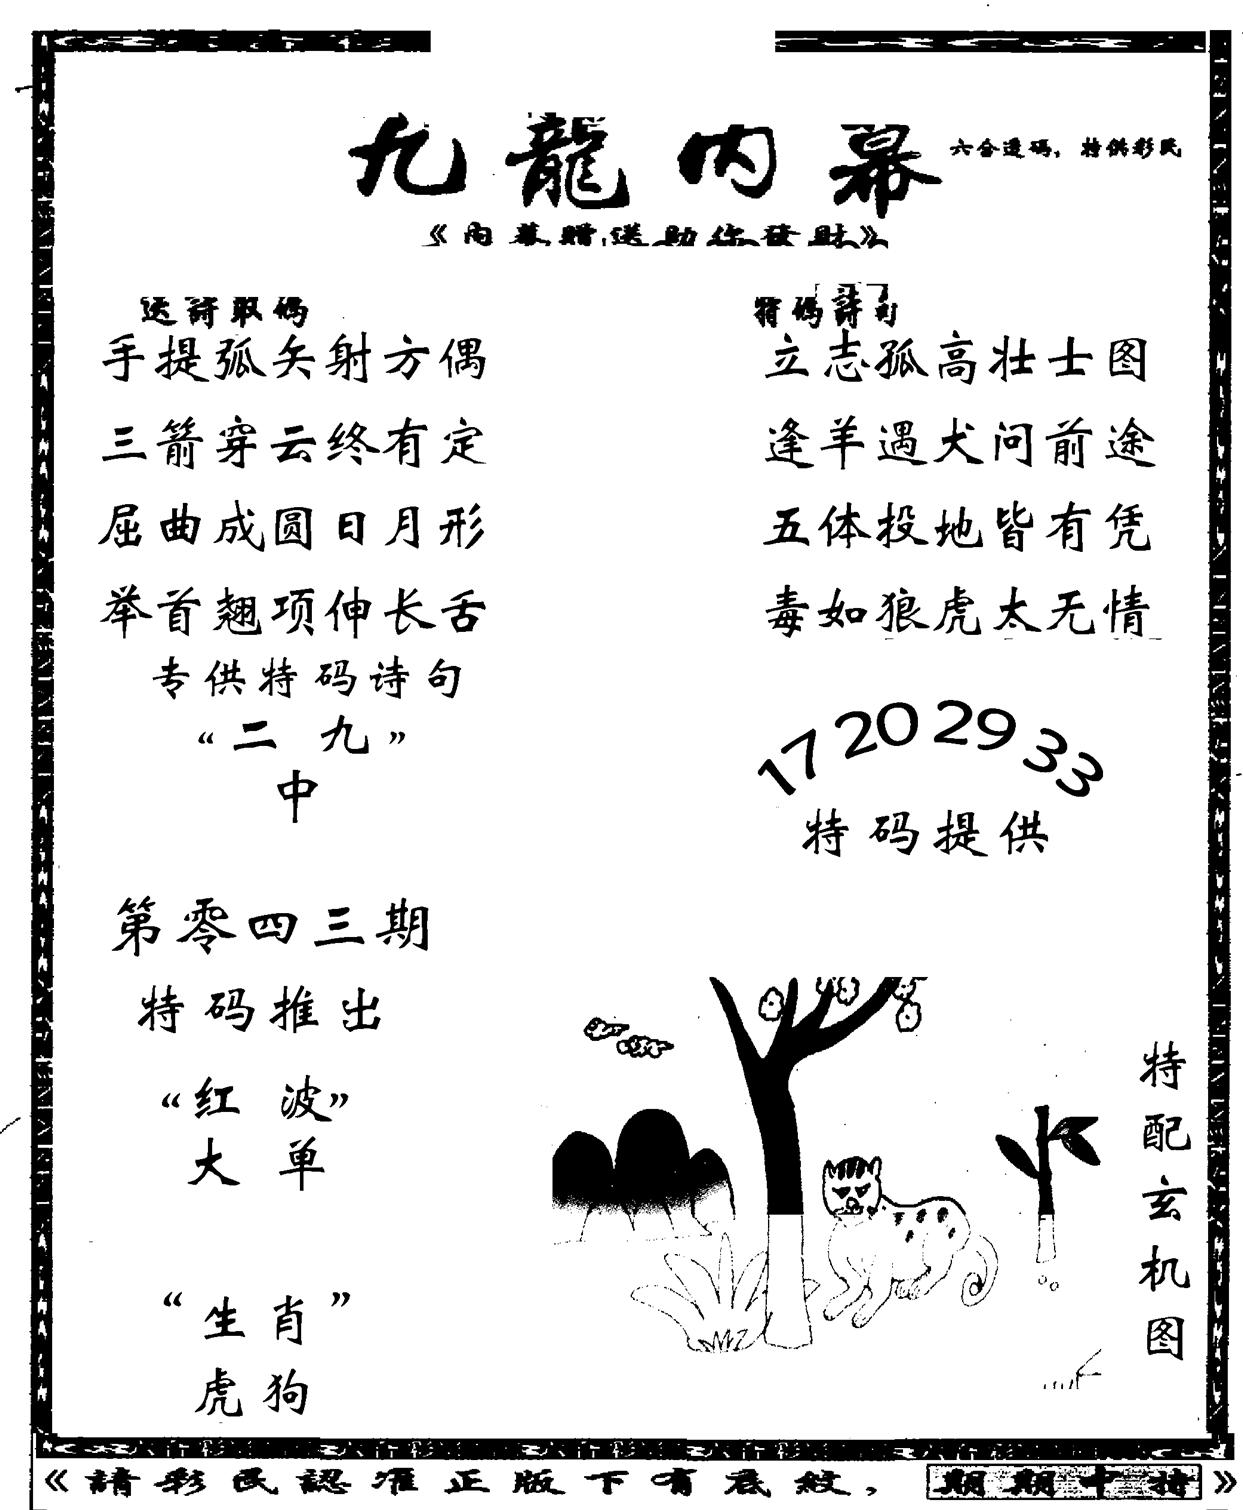 九龍内幕
六合透码，特供彩民
《内幕贈送助你發財》
送詩取碼
手提弧矢射方偶
三箭穿云终有定
屈曲成圆日月形
举首翘项伸长舌
专供特码诗句
“二 九”
中
特碼詩句
立志孤高壮士图
逢羊遇犬问前途
五体投地皆有凭
毒如狼虎太无情
17 20 29 33
特码提供
第零四三期
特码推出
“红 波”
大 单
“生肖”
虎狗
特配玄机图
《請彩民認准正版下有底紋，期期中特》